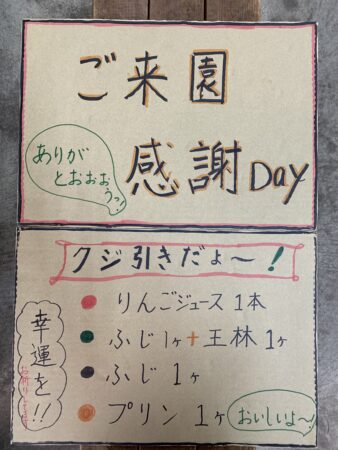 ご来園
感謝Day
ありが
とおおお
うっ!
クジ引きだよ〜!
りんごジュース 1本
ふじ1ヶ+王林1ヶ
ふじ 1ヶ
プリン 1ヶ
おいしいよ〜!
幸運を!!
お祈りします